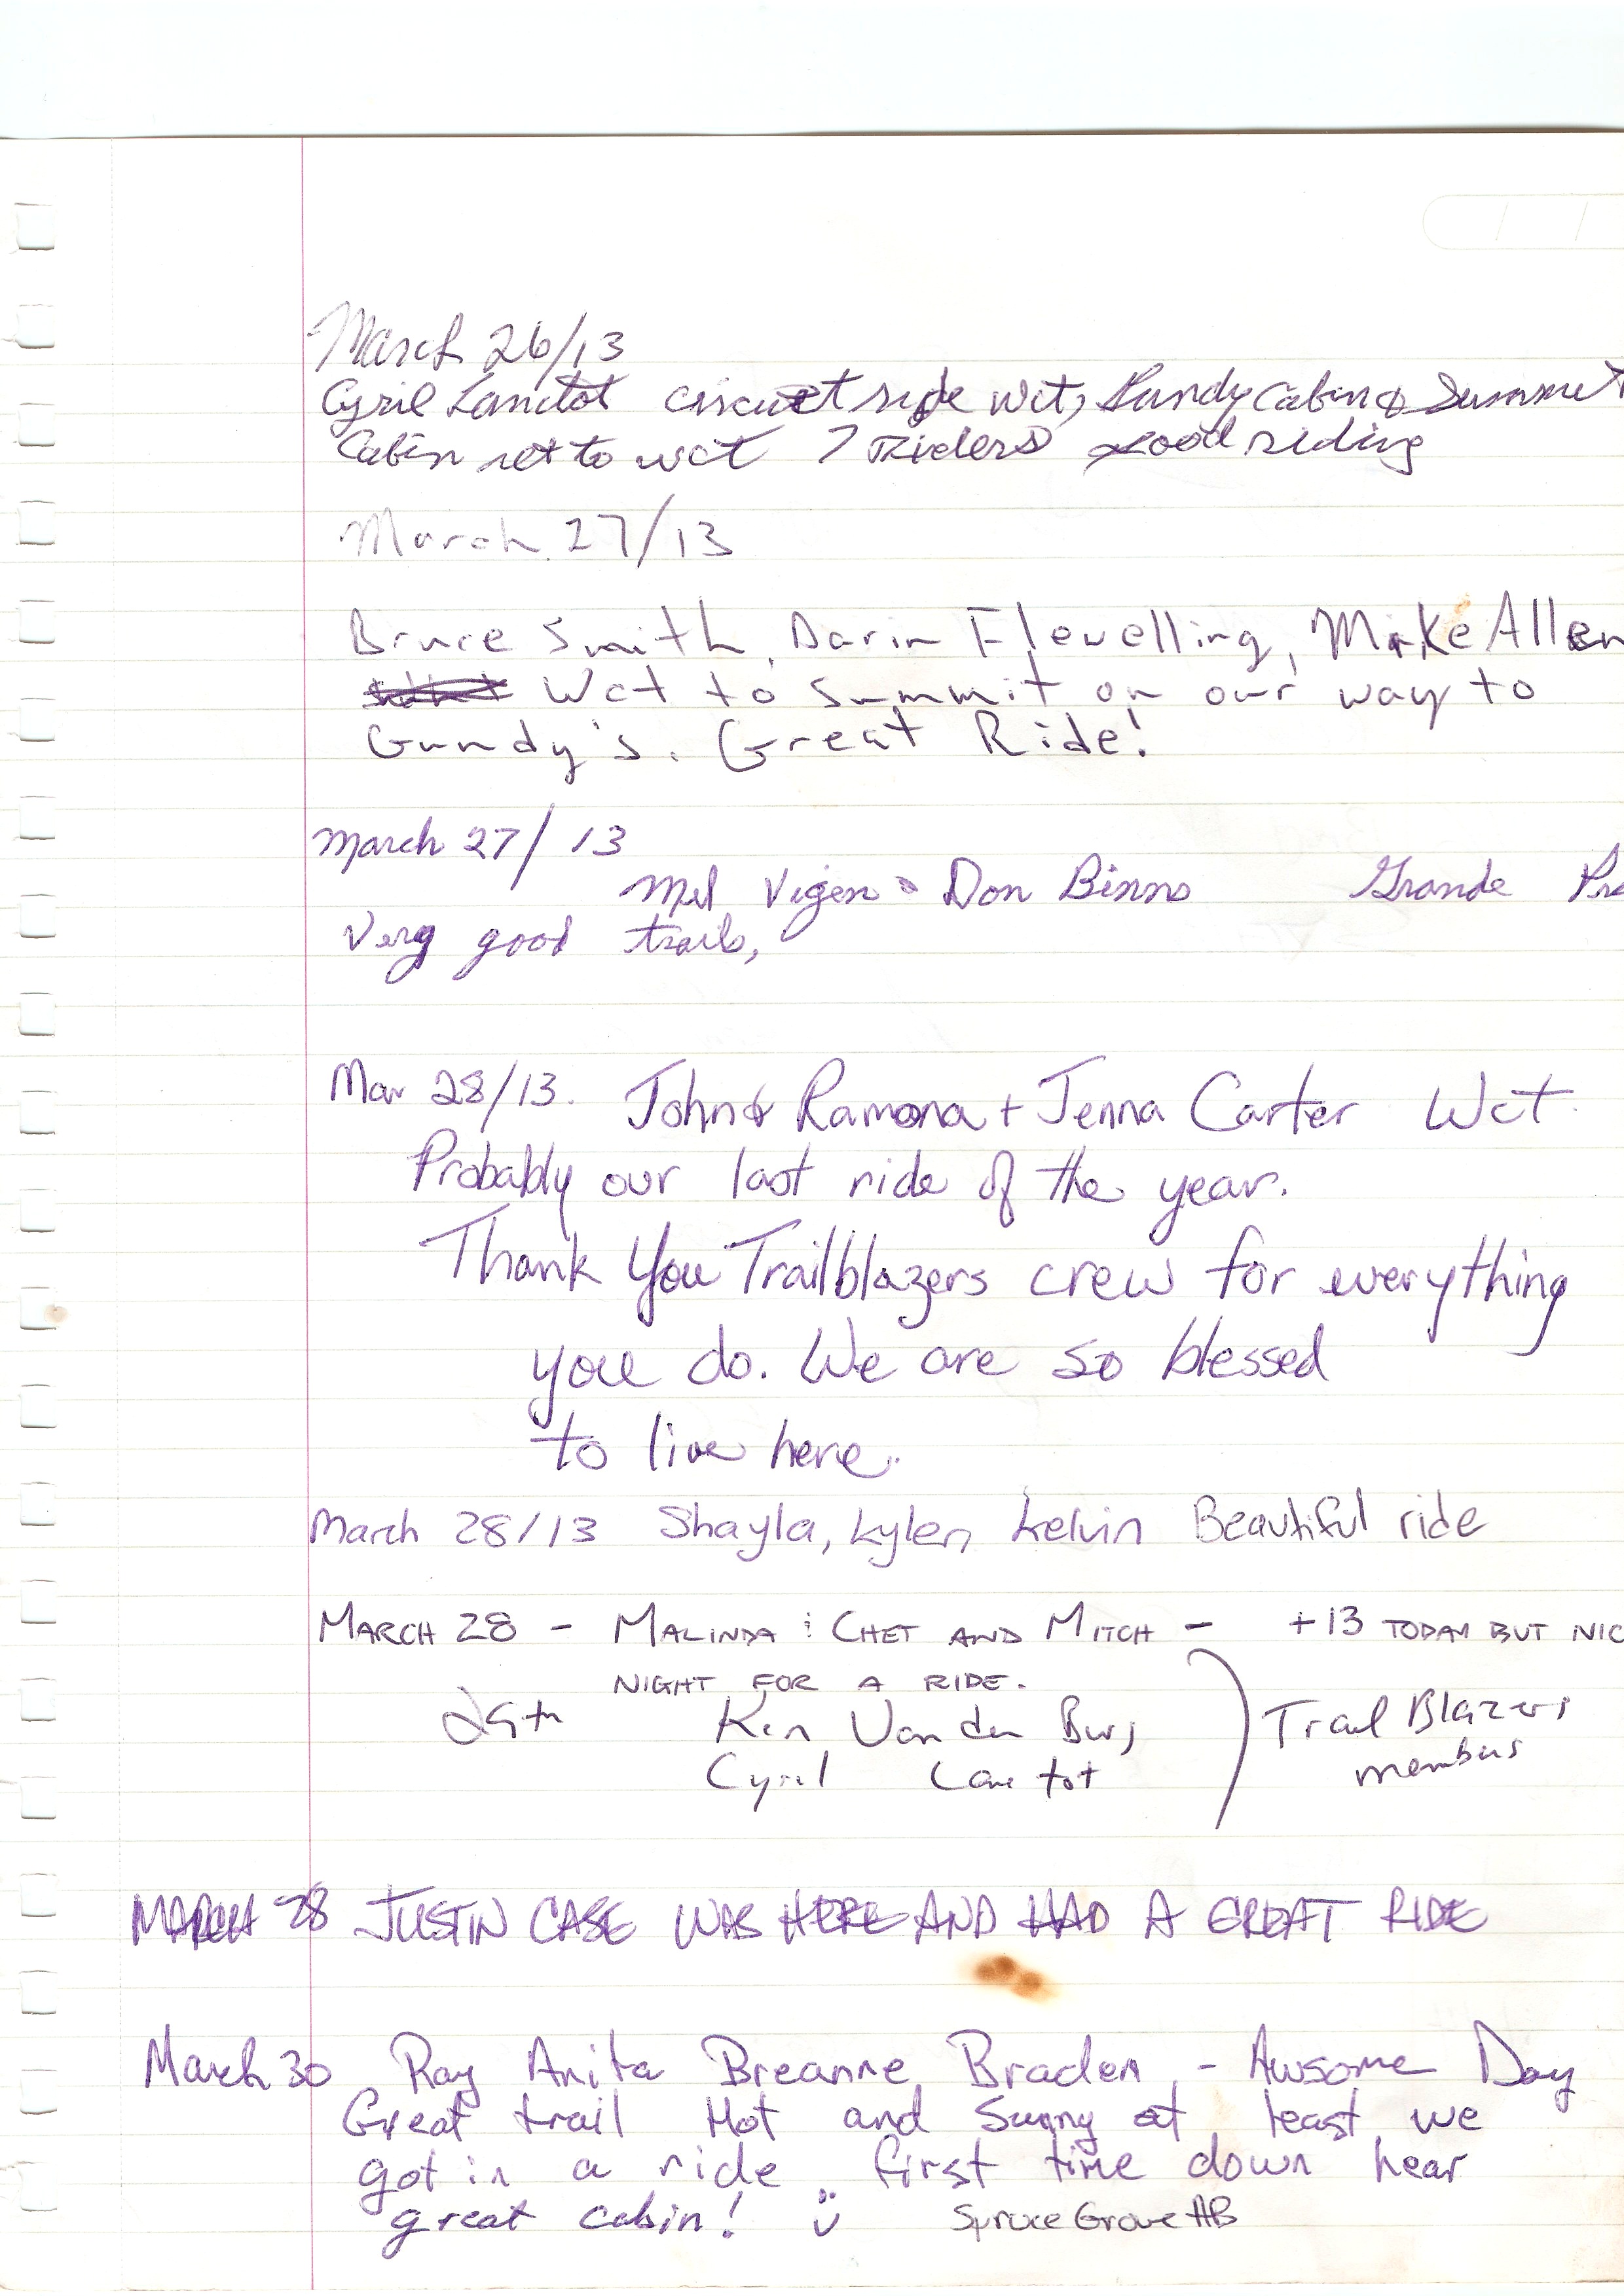 March 26/13
Cyril Lanctot circuet ride Wct, Gundy Cabin & Summet
Cabin ret to wct 7 Riders good riding
March 27/13
Bruce Smith, Darin Flewelling, Mike Allen
Wct to Summit on our way to
Gundy's. Great Ride!
March 27/13
Mel Vigen & Don Binns Grande Pra
Very good trails,
Mar 28/13. John & Ramona + Jenna Carter Wct.
Probably our last ride of the year.
Thank You Trailblazers crew for everything
you do. We are so blessed
to live here.
March 28/13 Shayla, Kylen, Kelvin Beautiful ride
MARCH 28 - MALINDA : CHET AND MITCH - +13 TODAY BUT NIC
NIGHT FOR A RIDE.
29th Ken Van den Burg Trail Blazers
Cyril Lanctot members
MARCH 28 JUSTIN CASE WAS HERE AND HAD A GREAT RIDE
March 30 Ray Anita Breanne Braden - Awsome Day
Great trail Hot and Sunny at least we
got in a ride first time down hear
great cabin! Spruce Grove AB